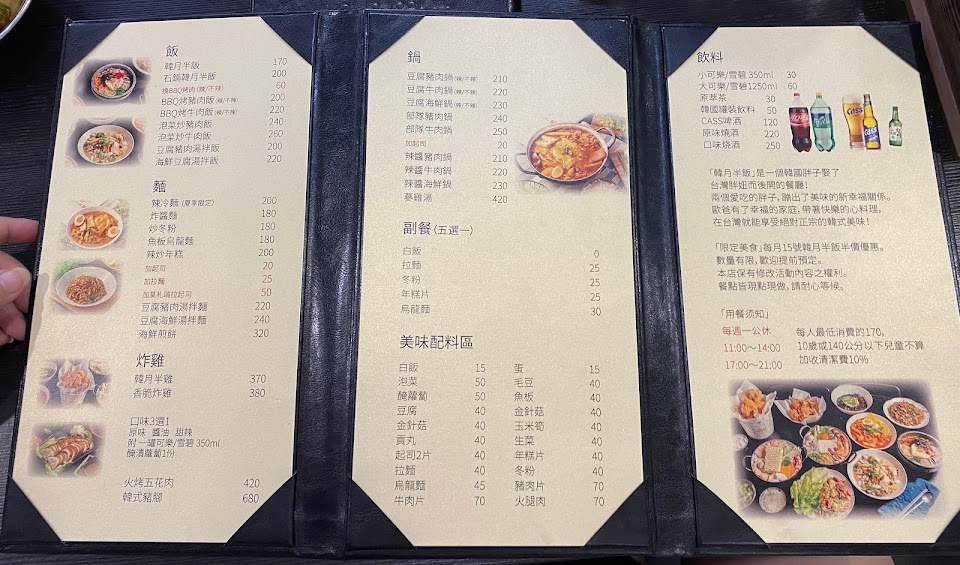 飯
韓月半飯 170
石鍋韓月半飯 200
換BBQ烤肉(辣/不辣) 60
BBQ烤豬肉飯(辣/不辣) 200
BBQ烤牛肉飯(辣/不辣) 220
泡菜炒豬肉飯 240
泡菜炒牛肉飯 260
豆腐豬肉湯拌飯 200
海鮮豆腐湯拌飯 220
麵
辣冷麵(夏季限定) 200
炸醬麵 180
炒冬粉 180
魚板烏龍麵 180
辣炒年糕 200
加起司 20
加拉麵 25
加莫札瑞拉起司 50
豆腐豬肉湯拌麵 220
豆腐海鮮湯拌麵 240
海鮮煎餅 320
炸雞
韓月半雞 370
香脆炸雞 380
口味3選1
原味 醬油 甜辣
附一罐可樂/雪碧 350ml
醃漬蘿蔔1份
火烤五花肉 420
韓式豬腳 680
鍋
豆腐豬肉鍋(辣/不辣) 210
豆腐牛肉鍋(辣/不辣) 220
豆腐海鮮鍋(辣/不辣) 230
部隊豬肉鍋 240
部隊牛肉鍋 250
加起司 20
辣醬豬肉鍋 210
辣醬牛肉鍋 220
辣醬海鮮鍋 230
蔘雞湯 420
副餐(五選一)
白飯 0
拉麵 25
冬粉 25
年糕片 25
烏龍麵 30
美味配料區
白飯 15 蛋 15
泡菜 50 毛豆 40
醃蘿蔔 50 魚板 40
豆腐 40 金針菇 40
金針菇 40 玉米筍 40
貢丸 40 生菜 40
起司2片 40 年糕片 40
拉麵 40 冬粉 40
烏龍麵 45 豬肉片 70
牛肉片 70 火腿肉 70
飲料
小可樂/雪碧 350ml 30
大可樂/雪碧1250ml 60
原萃茶 30
韓國罐裝飲料 50
CASS啤酒 120
原味燒酒 220
口味燒酒 250
「韓月半飯」是一個韓國胖子娶了
台灣胖妞而後開的餐廳!
兩個愛吃的胖子,蹦出了美味的新幸福關係。
歐爸有了幸福的家庭,帶著快樂的心料理,
在台灣就能享受絕對正宗的韓式美味!
「限定美食」每月15號韓月半飯半價優惠。
數量有限,歡迎提前預定。
本店保有修改活動內容之權利。
餐點皆現點現做,請耐心等候。
「用餐须知」
每週一公休 每人最低消費的170,
11:00~14:00 10歲或140公分以下兒童不算
17:00~21:00 加收清潔費10%
Cass
Cass